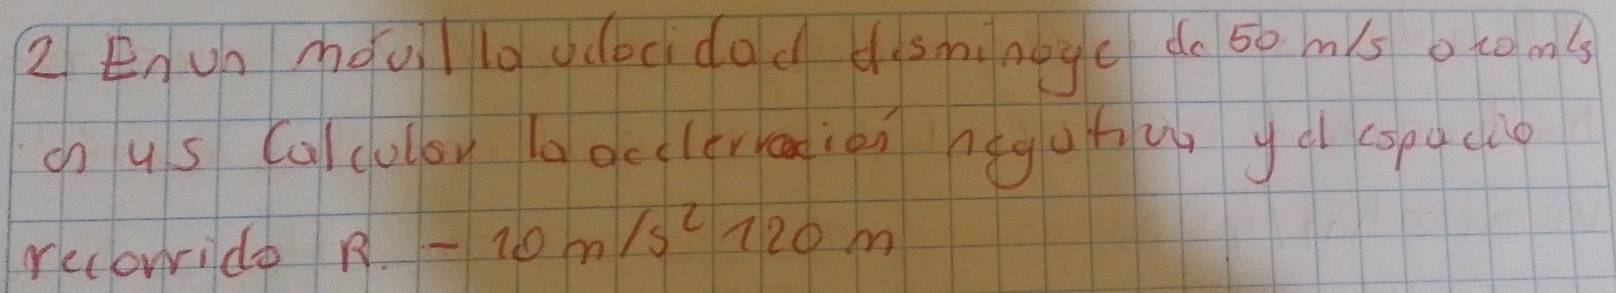 2 En un movil la velocidad disminuye de 50 m/s a 10 m/s
en 4s Calcular la acelerracion negativa y el espacio
recorrido R. - 10 m/s² 120 m